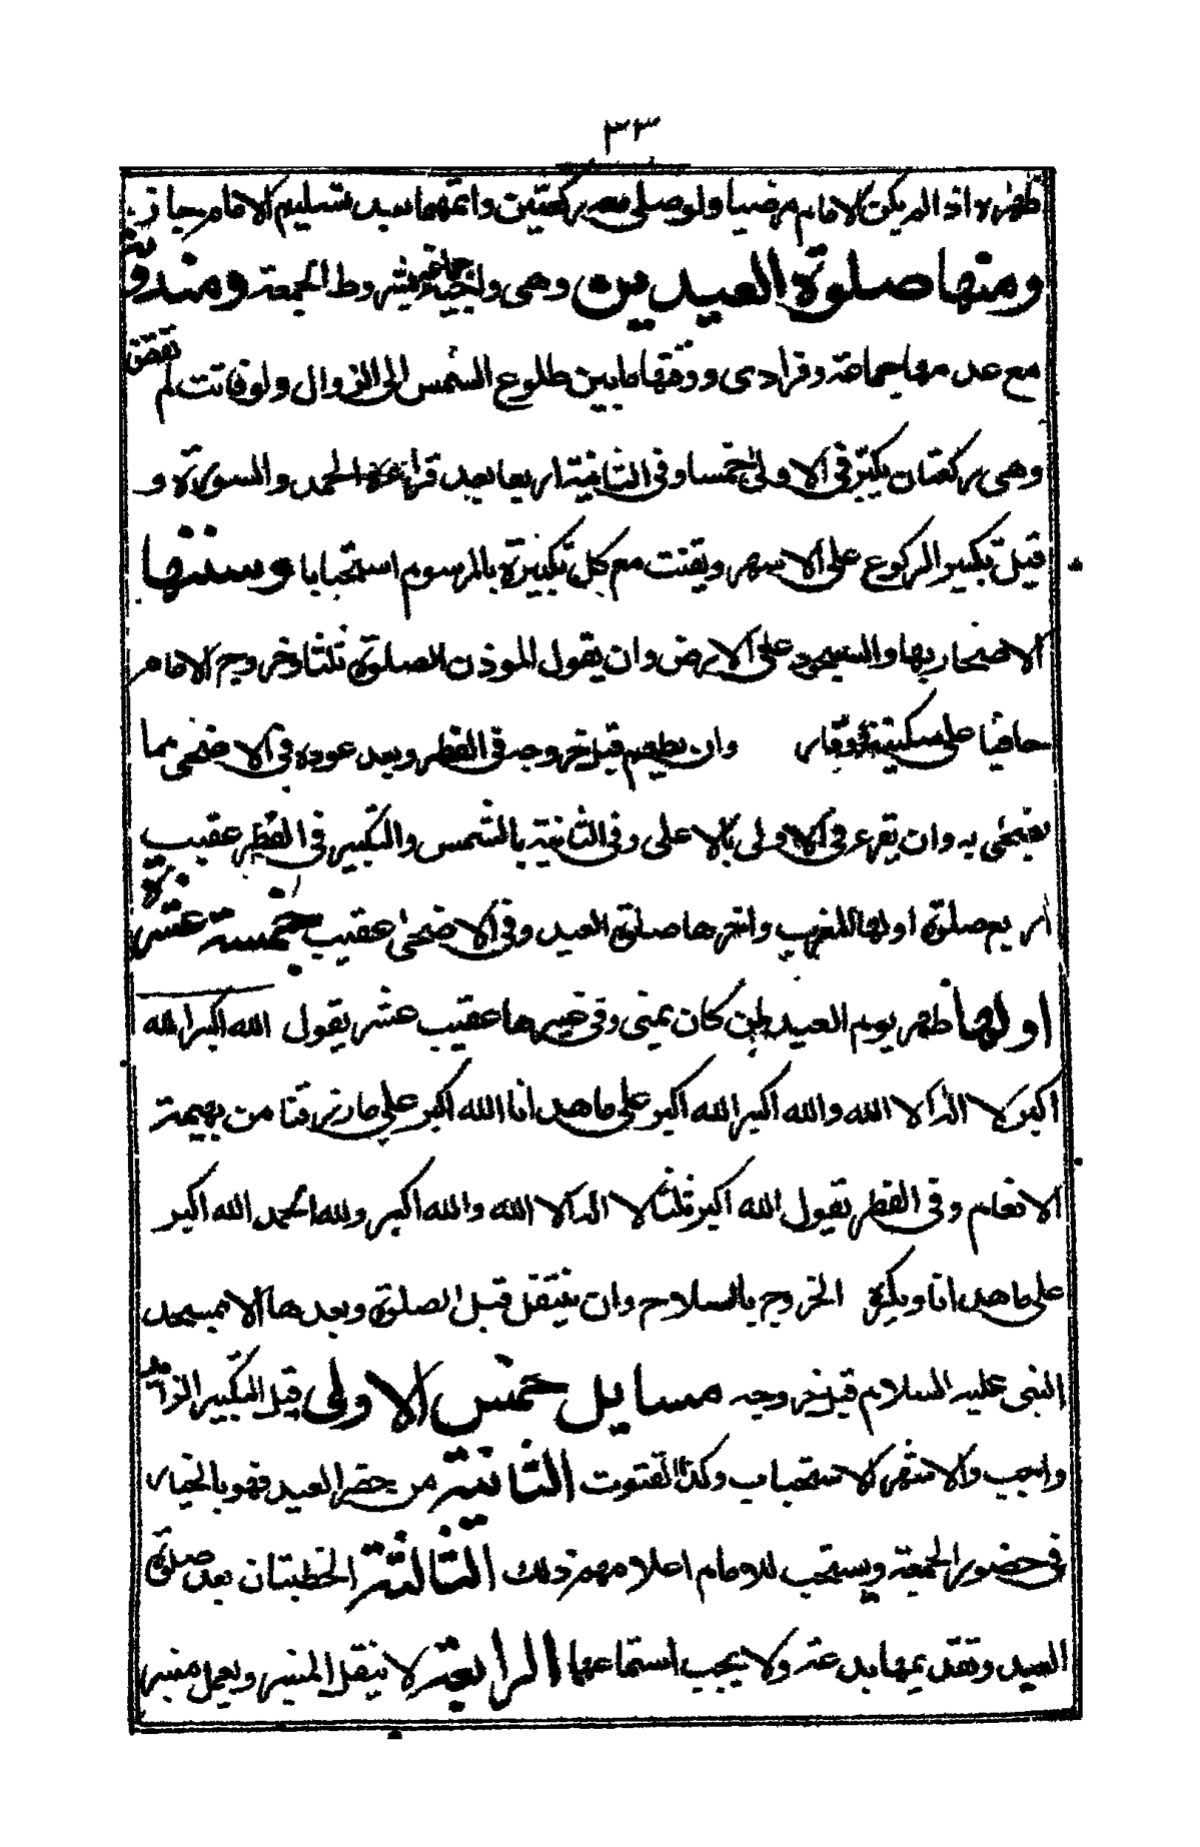 ٣٣
ظهره اذا لم يكن الامام مرضيا ولو صلى معه ركعتين واتمهما بعد تسليم الامام جاز
ومنها صلوة العيدين وهى واجبة جماعة بشروط الجمعة ومندوبة
مع عدمها جماعة وفرادى ووقتها ما بين طلوع الشمس الى الزوال ولو فاتت لم تقض
وهى ركعتان يكبر فى الاولى خمسا وفى الثانية اربعا بعد قراءة الحمد والسورة و
قبل تكبير الركوع على الاشهر ويقنت مع كل تكبيرة بالمرسوم استحبابا وسننها
الاصحار بها والسجود على الارض وان يقول المؤذن الصلوة ثلثا وخروج الامام
حافيا على سكينة ووقار وان يطعم قبل خروجه فى الفطر وبعد عوده فى الاضحى مما
يضحى به وان يقرء فى الاولى بالاعلى وفى الثانية بالشمس والتكبير فى الفطر عقيب
اربع صلوة اولها المغرب واخرها صلوة العيد وفى الاضحى عقيب خمسة عشر صلاة
اولها ظهر يوم العيد لمن كان بمنى وفى غيرها عقيب عشر يقول الله اكبر الله
اكبر لا اله الا الله والله اكبر الله اكبر على ما هدانا الله اكبر على ما رزقنا من بهيمة
الانعام وفى الفطر يقول الله اكبر ثلثا لا اله الا الله والله اكبر ولله الحمد الله اكبر
على ما هدانا ويكره الخروج بالسلاح وان يتنفل قبل الصلوة وبعدها الا بمسجد
النبى عليه السلام قبل خروجه مسايل خمس الاولى قيل التكبير الزائد
واجب والاشهر الاستحباب وكذا القنوت الثانية من حضر العيد فهو بالخيار
فى حضور الجمعة ويستحب للامام اعلامهم ذلك الثالثة الخطبتان بعد صلوة
العيد وتقديمها بدعة ولا يجب استماعها الرابعة لا ينقل المنبر ويعمل منبر